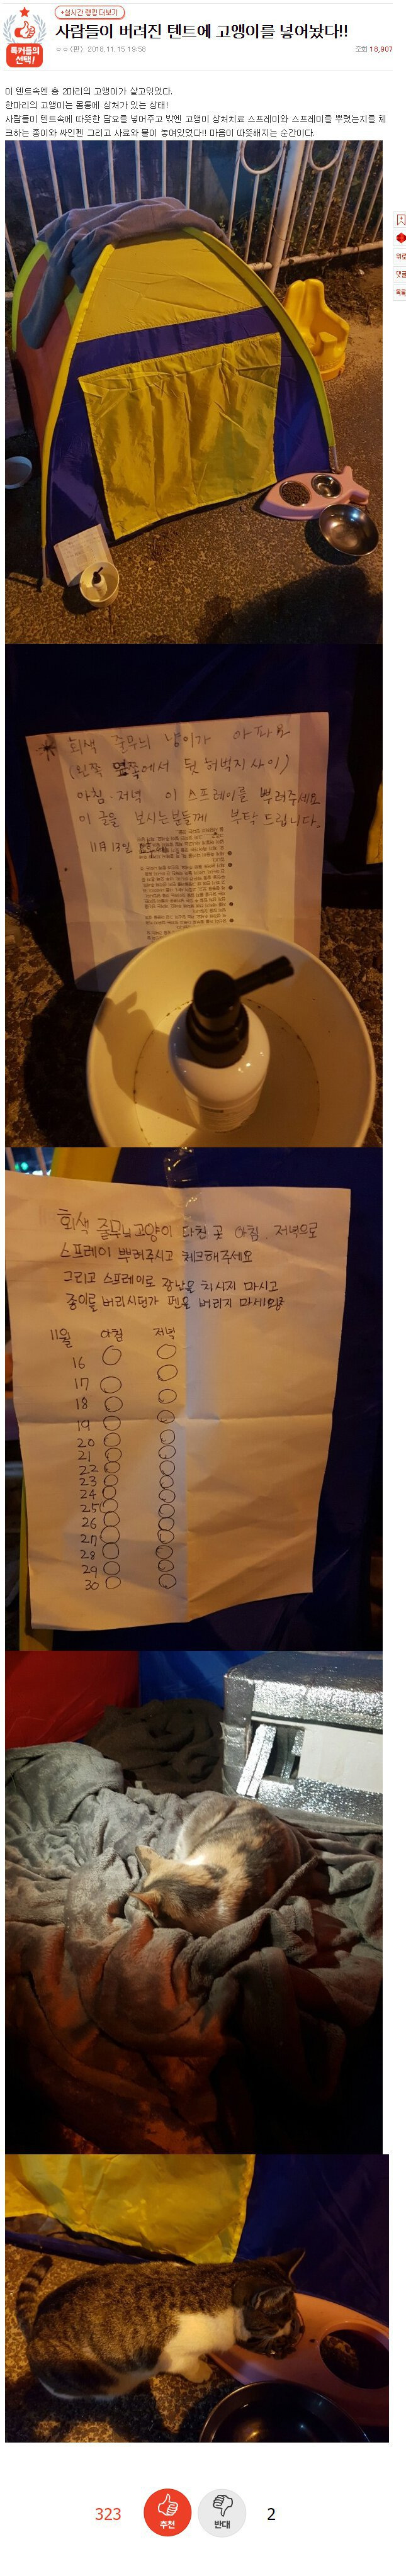 톡커들의
선택!
+실시간 랭킹 더보기
사람들이 버려진 텐트에 고앵이를 넣어놨다!!
ㅇㅇ (판) 2018.11.15 19:58
조회 18,907
이 텐트속엔 총 2마리의 고앵이가 살고있었다.
한마리의 고앵이는 몸통에 상처가 있는 상태!
사람들이 텐트속에 따뜻한 담요를 넣어주고 밖엔 고앵이 상처치료 스프레이와 스프레이를 뿌렸는지를 체
크하는 종이와 싸인펜 그리고 사료와 물이 놓여있었다!! 마음이 따뜻해지는 순간이다.
위로
댓글
목록
회색 줄무늬 냥이가 아파요
(왼쪽 옆쪽에서 뒷 허벅지 사이)
아침·저녁 이 스프레이를 뿌려주세요
이 글을 보시는분들께 부탁 드립니다.
11月 13일
회색 줄무늬고양이 다친 곳 아침 저녁으로
스프레이 뿌려주시고 체크해주세요
그리고 스프레이로 장난을 치시지 마시고
종이를 버리시던가 펜을 버리지 마세요
11월 아침 저녁
16
17
18
19
20
21
22
23
24
25
26
27
28
29
30
323
추천
반대
2